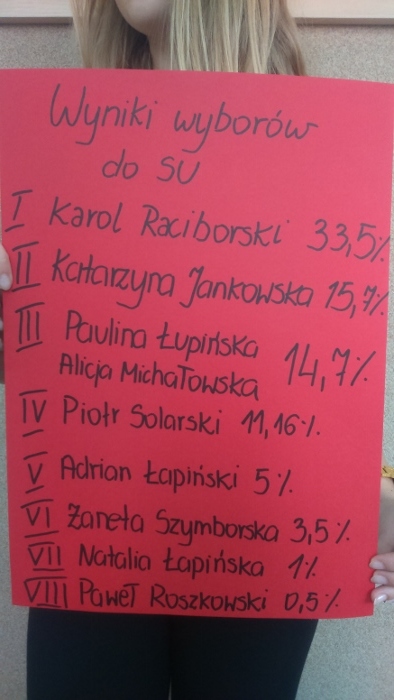 Wyniki wyborów
do SU
I Karol Raciborski 33,5%
II Katarzyna Jankowska 15,7%
III Paulina Łupińska 14,7%
Alicja Michałowska
IV Piotr Solarski 11,16%
V Adrian Łapiński 5%
VI Żaneta Szymborska 3,5%
VII Natalia Łapińska 1%
VIII Paweł Roszkowski 0,5%